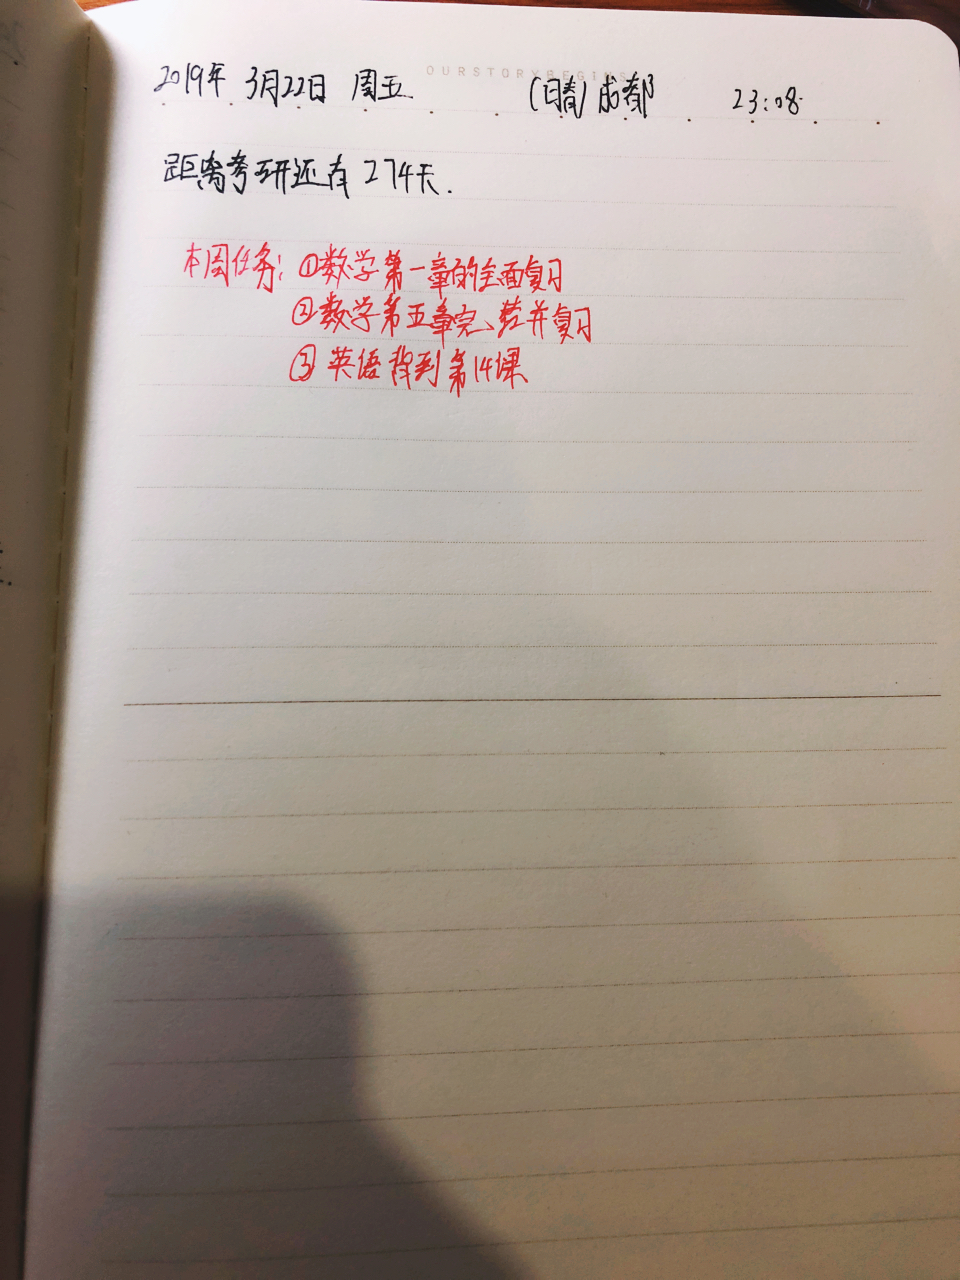 OURSTORYBEGINS
2019年 3月22日 周五 (日春) 成都 23:08
距离考研还有274天.
本周任务: ①数学第一章的全面复习
②数学第五章完、结并复习
③ 英语背到第14课